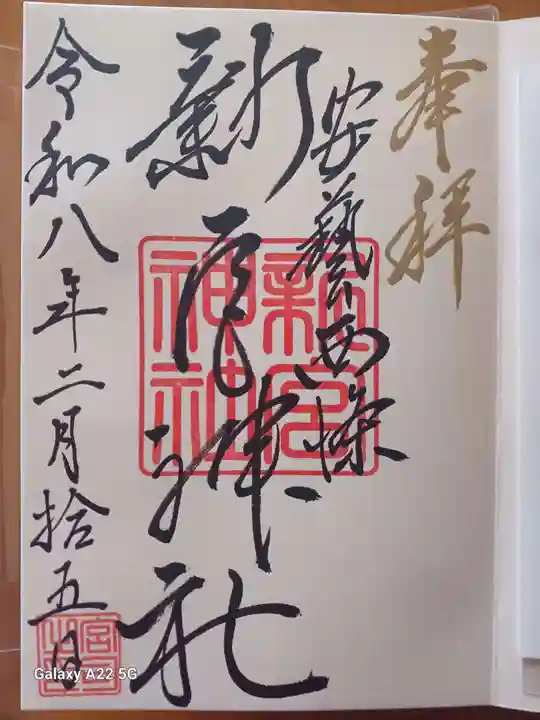 奉拝
安藝西條
新宮神社
新宮神社
令和八年二月拾五日
Galaxy A22 5G